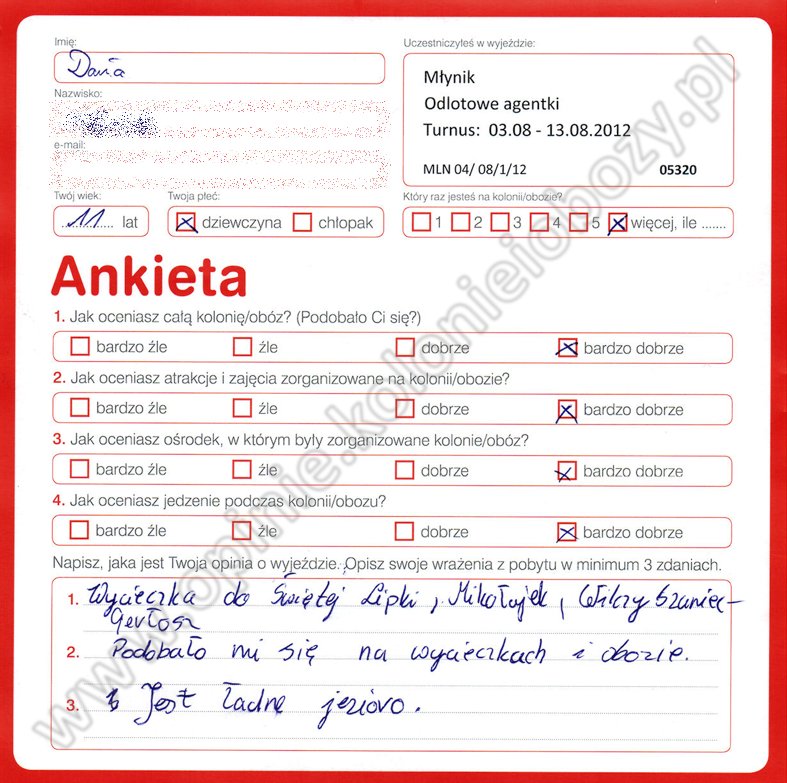 Imię:
Uczestniczyłeś w wyjeździe:
Daria
Młynik
Odlotowe agentki
Turnus: 03.08 - 13.08.2012
MLN 04/ 08/1/12 05320
Nazwisko:
e-mail:
Twój wiek: Twoja płeć: Który raz jesteś na kolonii/obozie?
11 lat dziewczyna chłopak 1 2 3 4 5 więcej, ile .......
Ankieta
1. Jak oceniasz całą kolonię/obóz? (Podobało Ci się?)
bardzo źle źle dobrze bardzo dobrze
2. Jak oceniasz atrakcje i zajęcia zorganizowane na kolonii/obozie?
bardzo źle źle dobrze bardzo dobrze
3. Jak oceniasz ośrodek, w którym były zorganizowane kolonie/obóz?
bardzo źle źle dobrze bardzo dobrze
4. Jak oceniasz jedzenie podczas kolonii/obozu?
bardzo źle źle dobrze bardzo dobrze
Napisz, jaka jest Twoja opinia o wyjeździe. Opisz swoje wrażenia z pobytu w minimum 3 zdaniach.
1. Wycieczka do Świętej Lipki, Mikołajek, Wilczy Szaniec-
Gierłosz
2. Podobało mi się na wycieczkach i obozie.
3. Jest ładne jezioro.
www.opinie.kolonieiobozy.pl